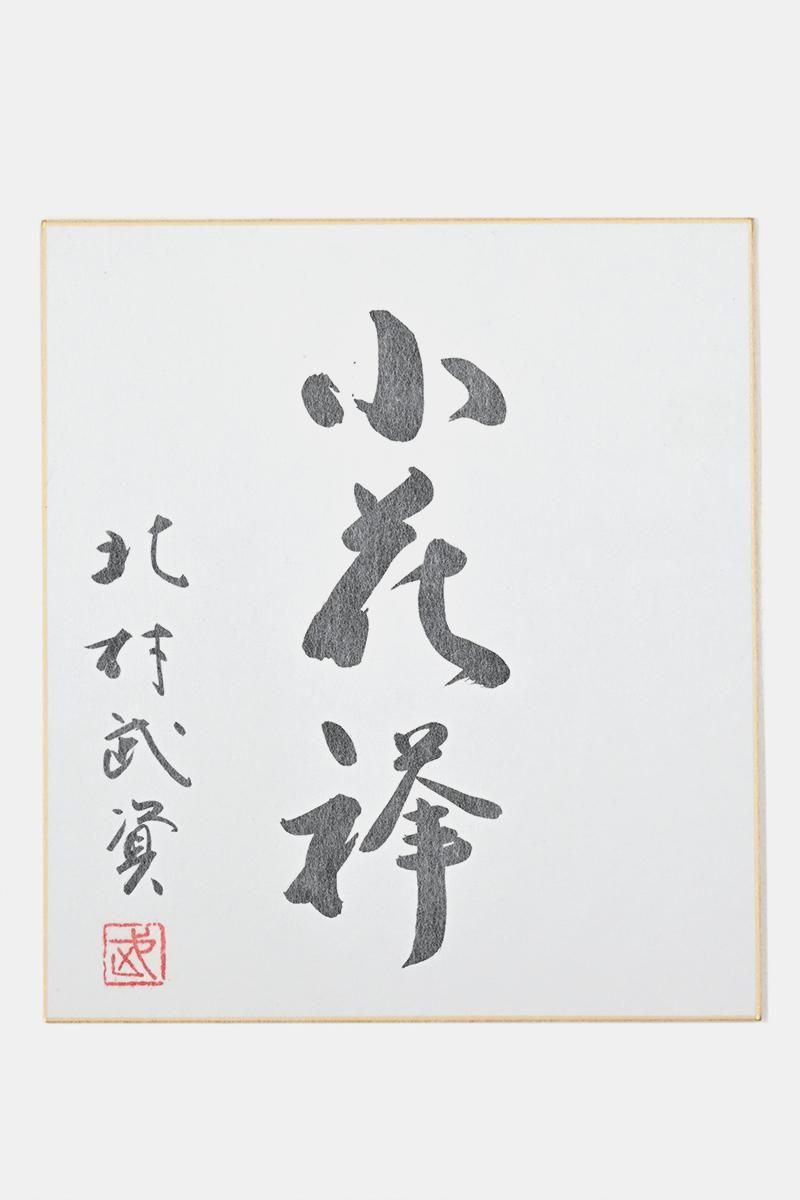 小花襷
北村武資
武